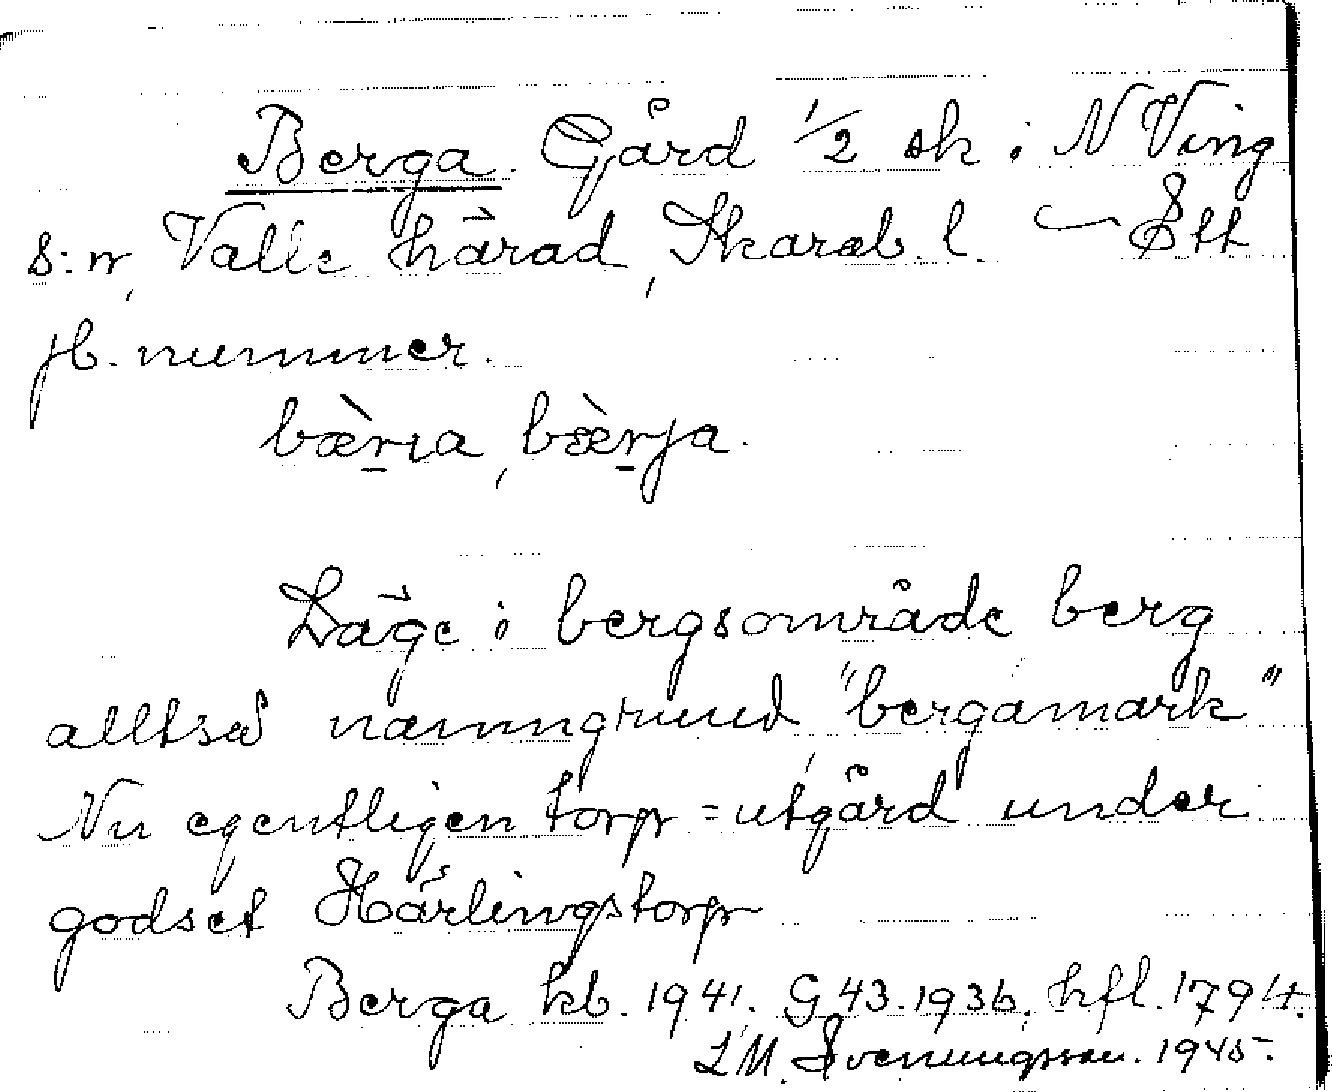 Berga. Gård 1/2 sk i N Ving
s:n, Valle härad, Skarab. l. — Ett
jb. nummer.
bæ̀r̠ıa, bæ̀r̠ja.
Läge i bergsområde berg
alltså namngrund, "bergamark"
Nu egentligen torp = utgård under
godset Härlingstorp
Berga kb. 1941. G 43. 1936. hfl. 1794.
L M. Svenungsson. 1945.